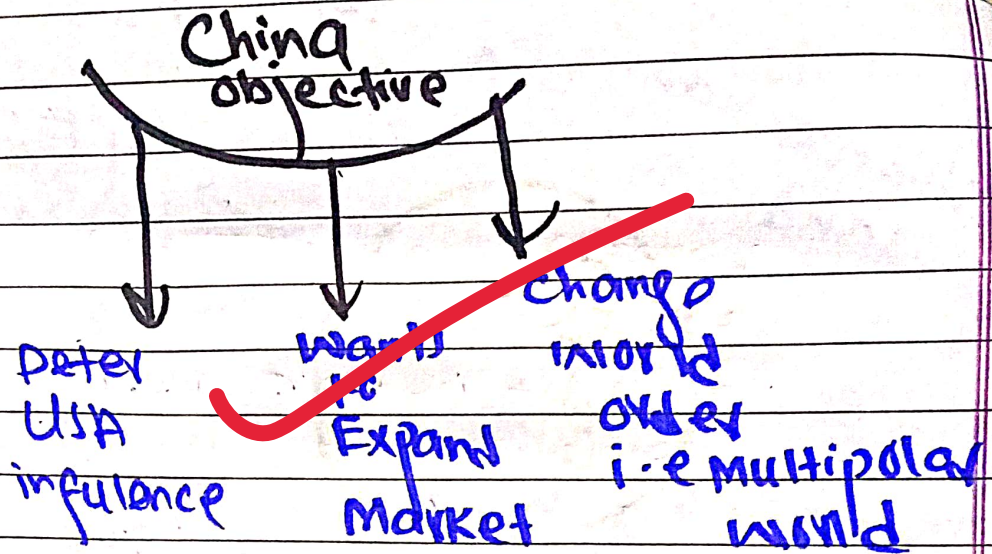 China
objective
Deter
USA
infulence
wants
to
Expand
Market
change
world
order
i.e Multipolar
world